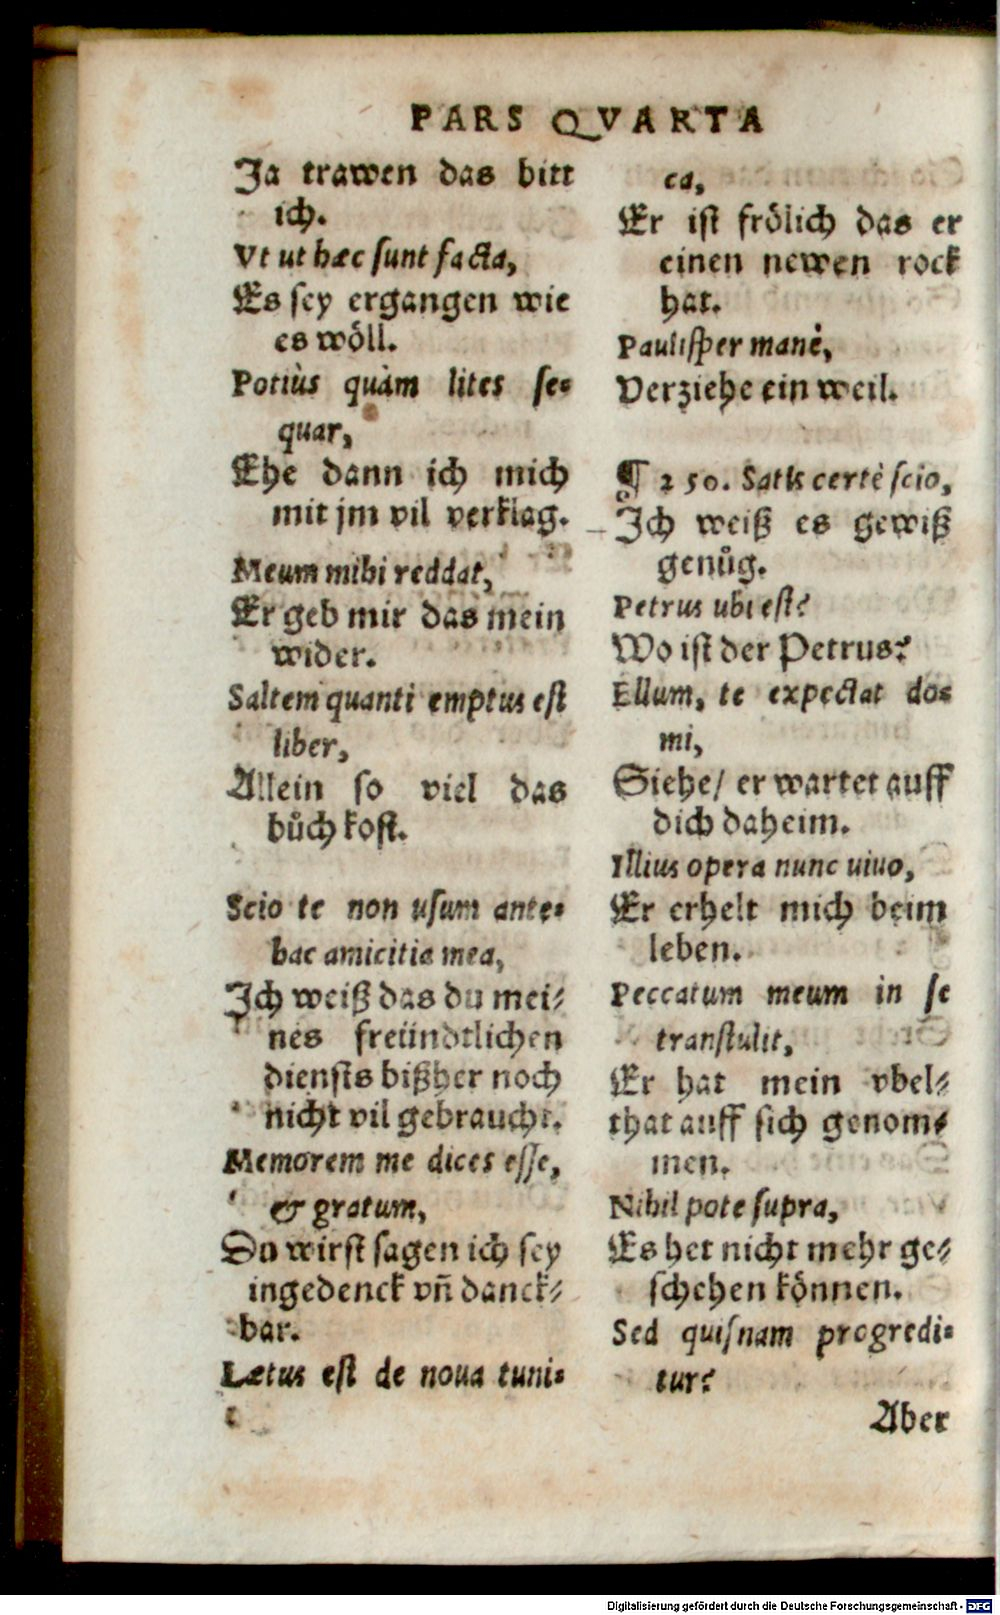 PARS QVARTA
Ja trawen das bitt
ich.
Vt ut hæc sunt facta,
Es sey ergangen wie
es wöll.
Potiùs quàm lites se-
quar,
Ehe dann ich mich
mit jm vil verklag.
Meum mihi reddat,
Er geb mir das mein
wider.
Saltem quanti emptus est
liber,
Allein so viel das
bůch kost.
Scio te non usum ante-
hac amicitia mea,
Ich weiß das du mei-
nes freündtlichen
diensts bißher noch
nicht vil gebraucht.
Memorem me dices esse,
& gratum,
Du wirst sagen ich sey
ingedenck vñ danck-
bar.
Lætus est de noua tuni-
ca,
Er ist frölich das er
einen newen rock
hat.
Paulisper manè,
Verziehe ein weil.
¶ 250. Satis certè scio,
Ich weiß es gewiß
genůg.
Petrus ubi est?
Wo ist der Petrus?
Ellum, te expectat do-
mi,
Siehe/ er wartet auff
dich daheim.
Illius opera nunc uiuo,
Er erhelt mich beim
leben.
Peccatum meum in se
transtulit,
Er hat mein vbel-
that auff sich genom-
men.
Nihil pote supra,
Es het nicht mehr ge-
schehen können.
Sed quisnam progredi-
tur?
Aber
Digitalisierung gefördert durch die Deutsche Forschungsgemeinschaft - DFG